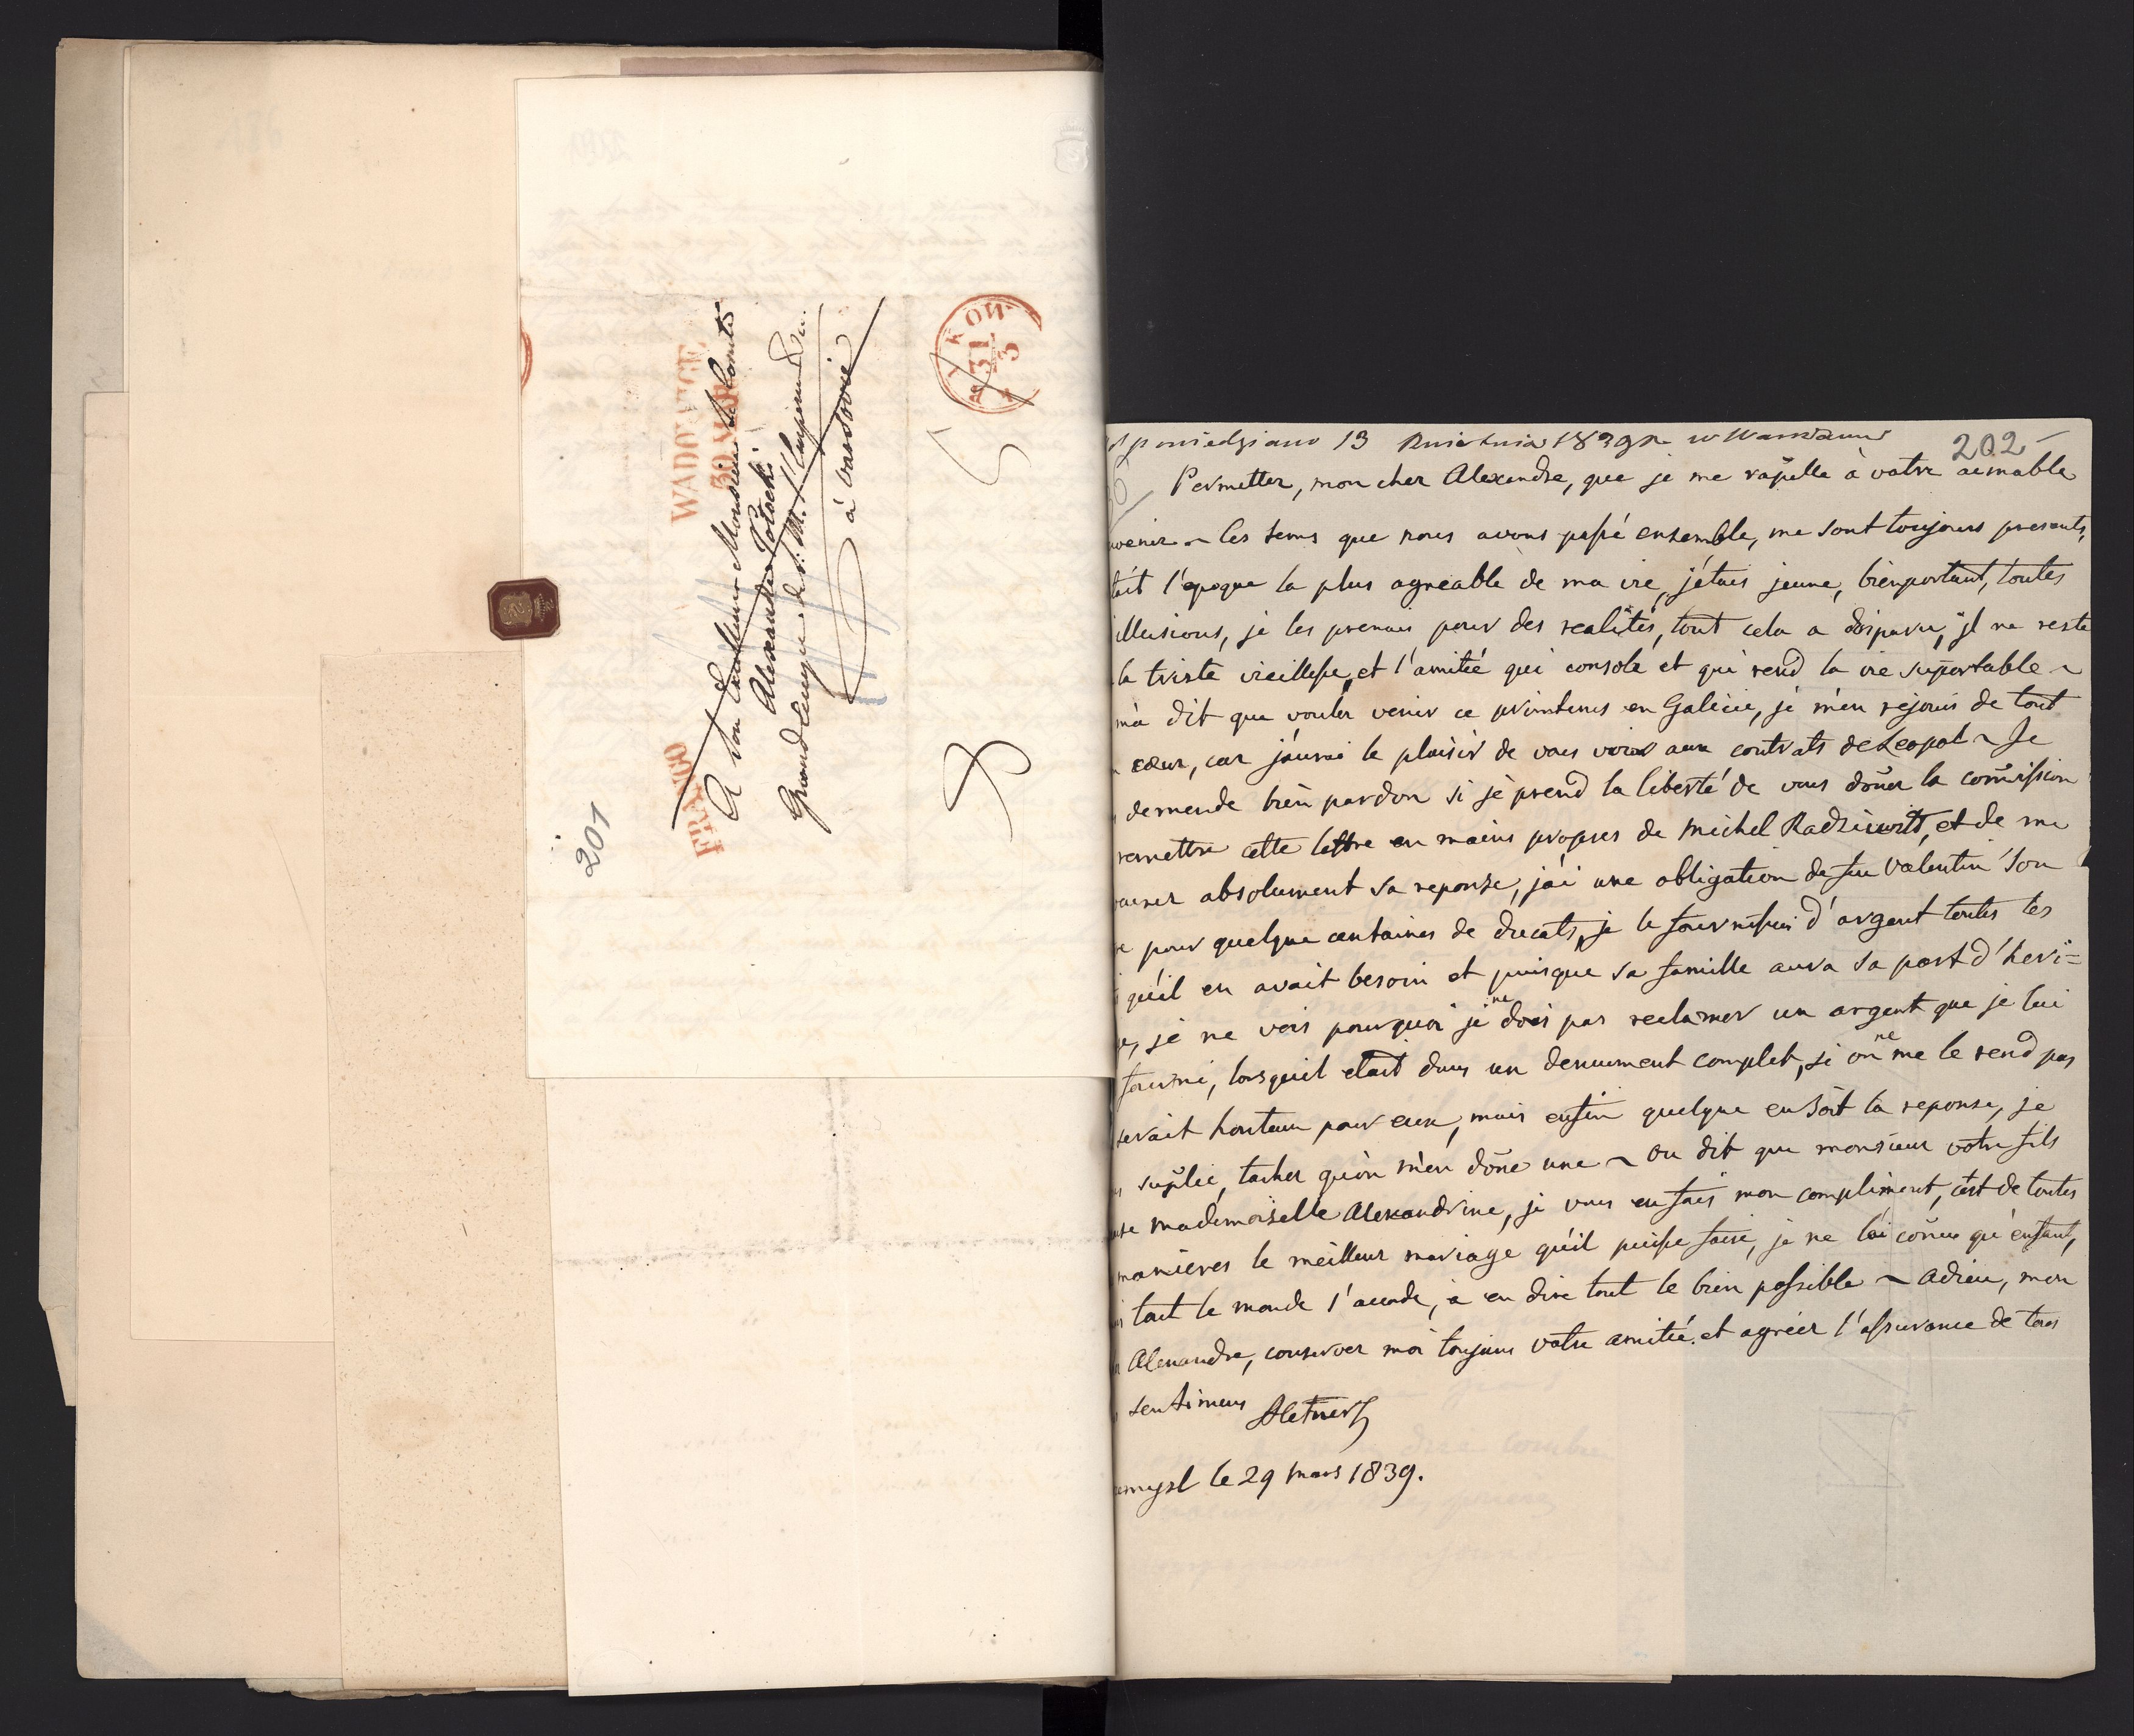 201
FRANCO
WADOWICE
30 MAR
A Son Excellence Monsieur le Comte
Alexandre Potocki
Grand Ecuyer de S. M. l'Empereur &c.
à Varsovie
31
3
202
13 Kwietnia 1839 r w Warszawie
Permetter, mon cher Alexandre, que je me rapelle à votre aimable
venir ~ les tems que nous avons passé ensemble, me sont toujours presents,
tait l'epoque la plus agreable de ma vie, j'étais jeune, bienportant, toutes
illusions, je les prenais pour des realités, tout cela a disparu, il ne reste
la triste vieillesse, et l'amitié qui console et qui rend la vie suportable ~
m'a dit que vouler venir ce printems en Galicie, je m'en rejouis de tout
cœur, car j'aurai le plaisir de vous voir aux contrats de Leopol ~ Je
demende bien pardon si je prend la liberté de vous doñer la com̃ission
remettre cette lettre en mains propres de Michel Radziwitt, et de me
absolument sa reponse, j'ai une obligation de feu Valentin son
pour quelque centaines de ducats, je le fournissais d'argent toutes les
qu'il en avait besoin et puisque sa famille aura sa part d'heri=
je ne vois pourquoi je ne dois pas reclamer un argent que je lui
fourni, lorsqu'il etait dans un denuement complet, si on ne me le rend pas
serait honteux pour eux, mais enfin quelque en soit la reponse, je
suplie, tacher qu'on m'en doñe une ~ On dit que monsieur votre fils
mademoiselle Alexandrine, je vous en fais mon compliment, c'est de toutes
manieres le meilleur mariage qu'il puisse faire, je ne l'ai coñu qu'enfant,
tout le monde s'accorde, a en dire tout le bien possible ~ Adieu, mon
Alexandre, conserver moi toujours votre amitié et agréer l'assurance de tous
sentimens
emysl le 29 Mars 1839.